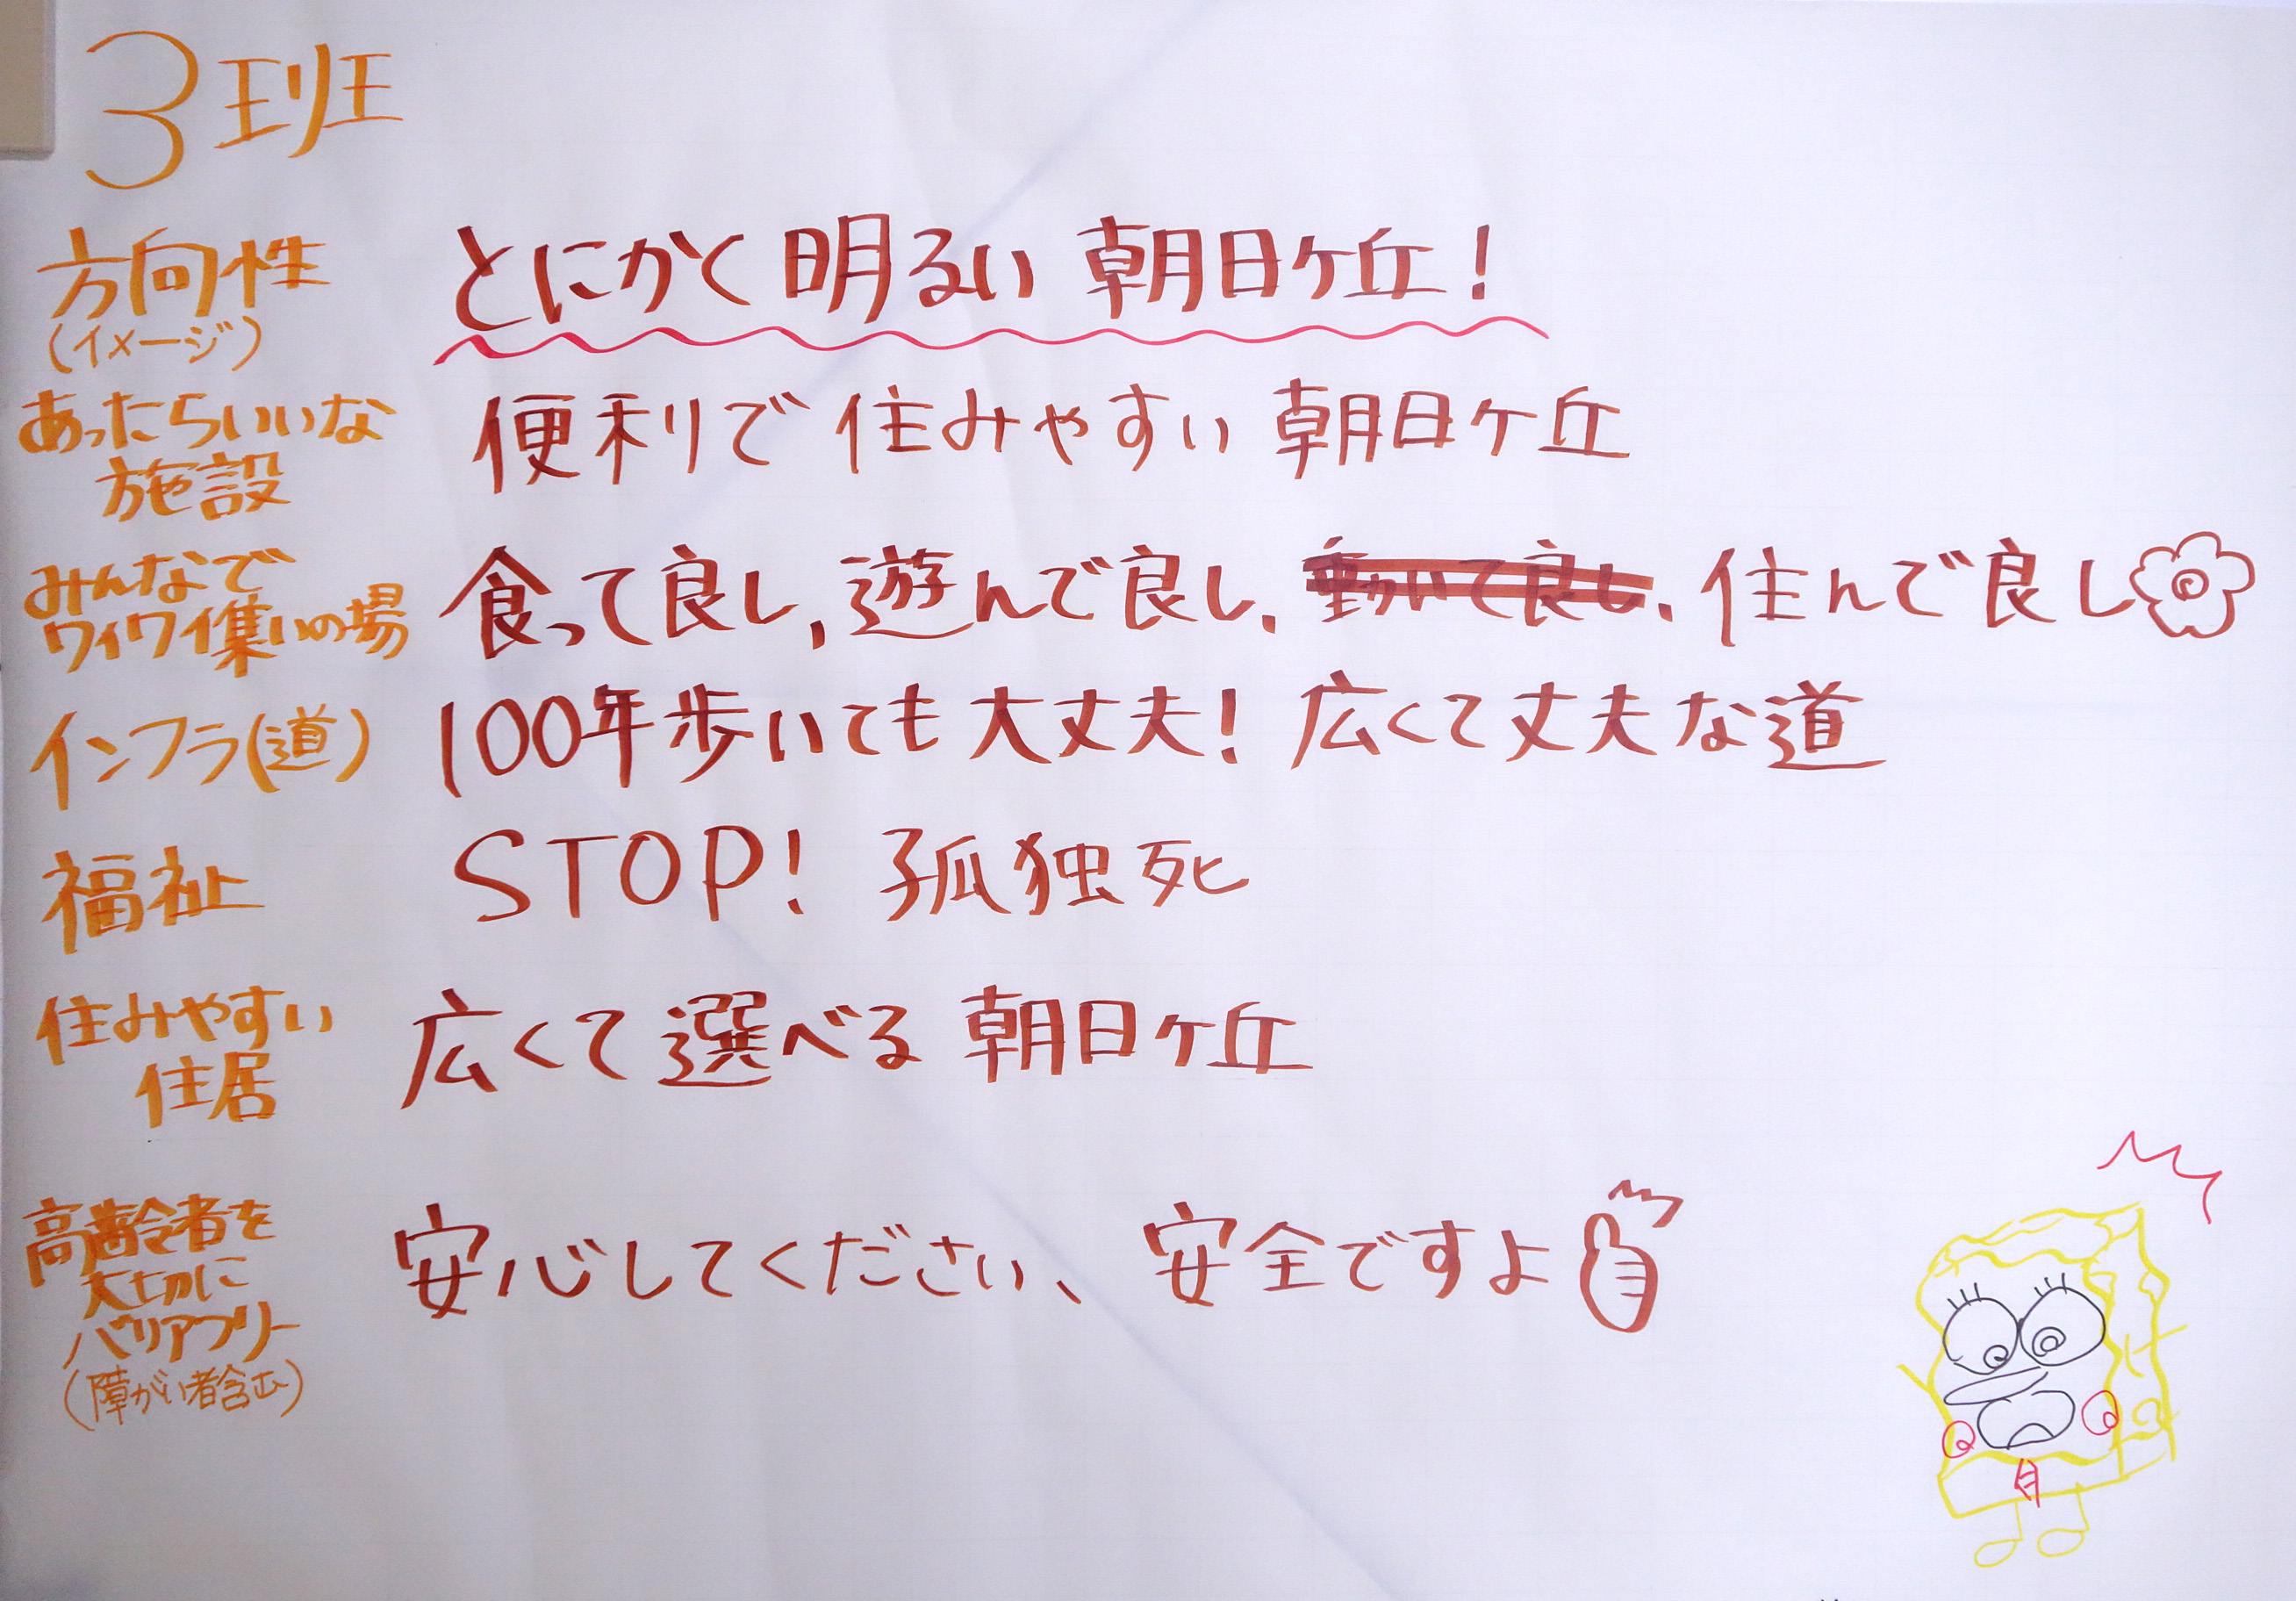 3班
方向性
(イメージ)
とにかく明るい 朝日ヶ丘!
あったらいいな
施設
便利で住みやすい 朝日ヶ丘
みんなで
ワイワイ集いの場
食って良し、遊んで良し、動いて良し、住んで良し
インフラ(道)
100年歩いても大丈夫! 広くて丈夫な道
福祉
STOP! 孤独死
住みやすい
住居
広くて選べる 朝日ヶ丘
高齢者を
大切に
バリアフリー
(障がい者含む)
安心してください、安全ですよ